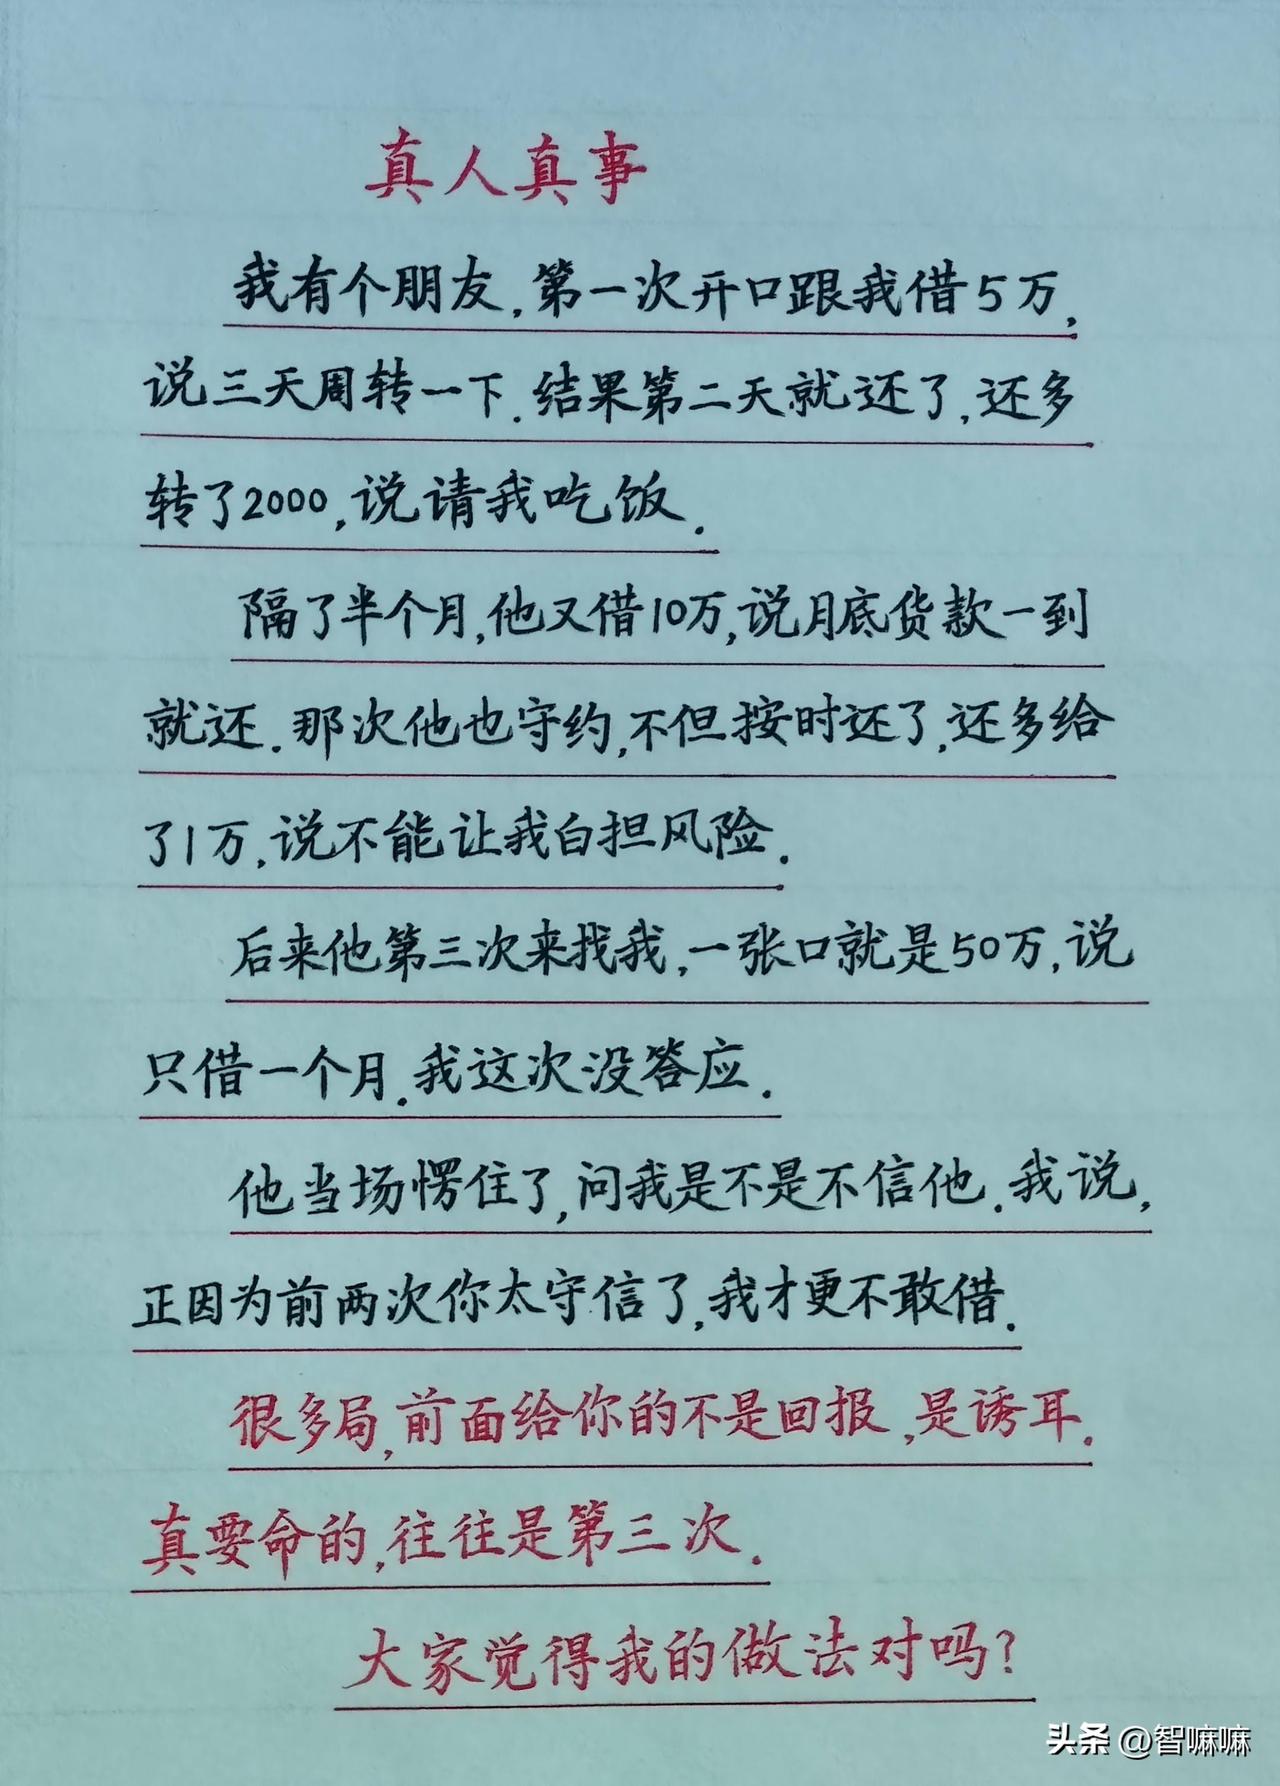 真人真事
我有个朋友,第一次开口跟我借5万,
说三天周转一下.结果第二天就还了,还多
转了2000,说请我吃饭.
隔了半个月,他又借10万,说月底货款一到
就还.那次他也守约,不但按时还了,还多给
了1万,说不能让我白担风险.
后来他第三次来找我,一张口就是50万,说
只借一个月.我这次没答应.
他当场愣住了,问我是不是不信他.我说,
正因为前两次你太守信了,我才更不敢借.
很多局,前面给你的不是回报,是诱耳.
真要命的,往往是第三次.
大家觉得我的做法对吗?
头条 @智嘛嘛